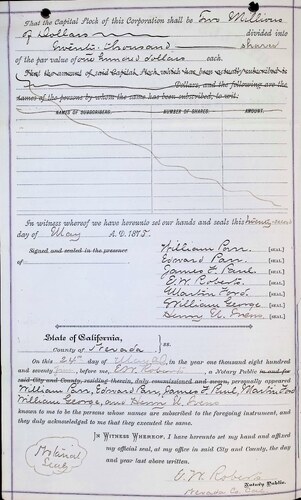 That the Capital Stock of this Corporation shall be Two Millions
of Dollars divided into
Twenty thousand shares
of the par value of one hundred dollars each.
That the amount of said Capital Stock which has been actually subscribed is
Dollars, and the following are the
names of persons by whom the same has been subscribed, to wit:
NAMES OF SUBSCRIBERS. NUMBER OF SHARES. AMOUNT.
In witness whereof we have hereunto set our hands and seals this
day of May A.D. 1875.
Signed and sealed in the presence
of
William Parr. [SEAL]
Edward Parr. [SEAL]
James F. Paul [SEAL]
E.W. Roberts [SEAL]
Martin Ford. [SEAL]
William George. [SEAL]
Henry U. Evens [SEAL]
State of California,
County of Nevada
On this 24th day of in the year one thousand eight hundred
and seventy before me, E.W. Roberts, a Notary Public in and for
said City and County, residing therein, duly commissioned and sworn, personally appeared
William Parr, Edward Parr, James F. Paul, Martin Ford
William George, and Henry U. Evens
known to me to be the persons whose names are subscribed to the foregoing instrument, and
they duly acknowledged to me that they executed the same.
IN WITNESS WHEREOF, I have hereunto set my hand and affixed
my official seal, at my office in said City and County, the day
and year last above written.
Notarial
Seal
E.W. Roberts
Notary Public.
Nevada Co.